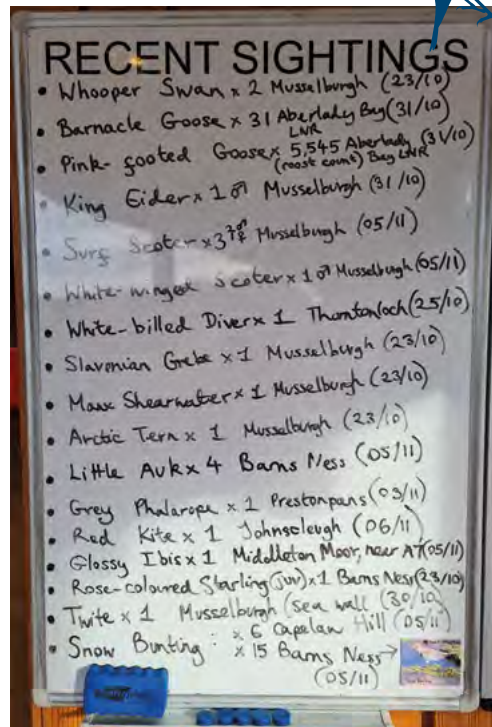 RECENT SIGHTINGS
• Whooper Swan x 2 Musselburgh (23/10)
• Barnacle Goose x 31 Aberlady Bay (31/10)
LNR
• Pink-footed Goose x 5,545 Aberlady (31/10)
(roost count) Bay LNR
• King Eider x 1♂ Musselburgh (31/10)
• Surf Scoter x 3 Musselburgh (05/11)
• White-winged Scoter x 1♂ Musselburgh (05/11)
• White-billed Diver x 1 Thorntonloch (25/10)
• Slavonian Grebe x 1 Musselburgh (23/10)
• Manx Shearwater x 1 Musselburgh (23/10)
• Arctic Tern x 1 Musselburgh (23/10)
• Little Auk x 4 Barns Ness (05/11)
• Grey Phalarope x 1 Prestonpans (03/11)
• Red Kite x 1 Johnscleugh (06/11)
• Glossy Ibis x 1 Middleton Moor, near A7 (05/11)
• Rose-coloured Starling (juv) x 1 Barns Ness (23/10)
• Twite x 1 Musselburgh (sea wall (30/10)
• Snow Bunting : x 6 Capelaw Hill (05/11)
x 15 Barns Ness →
(05/11)